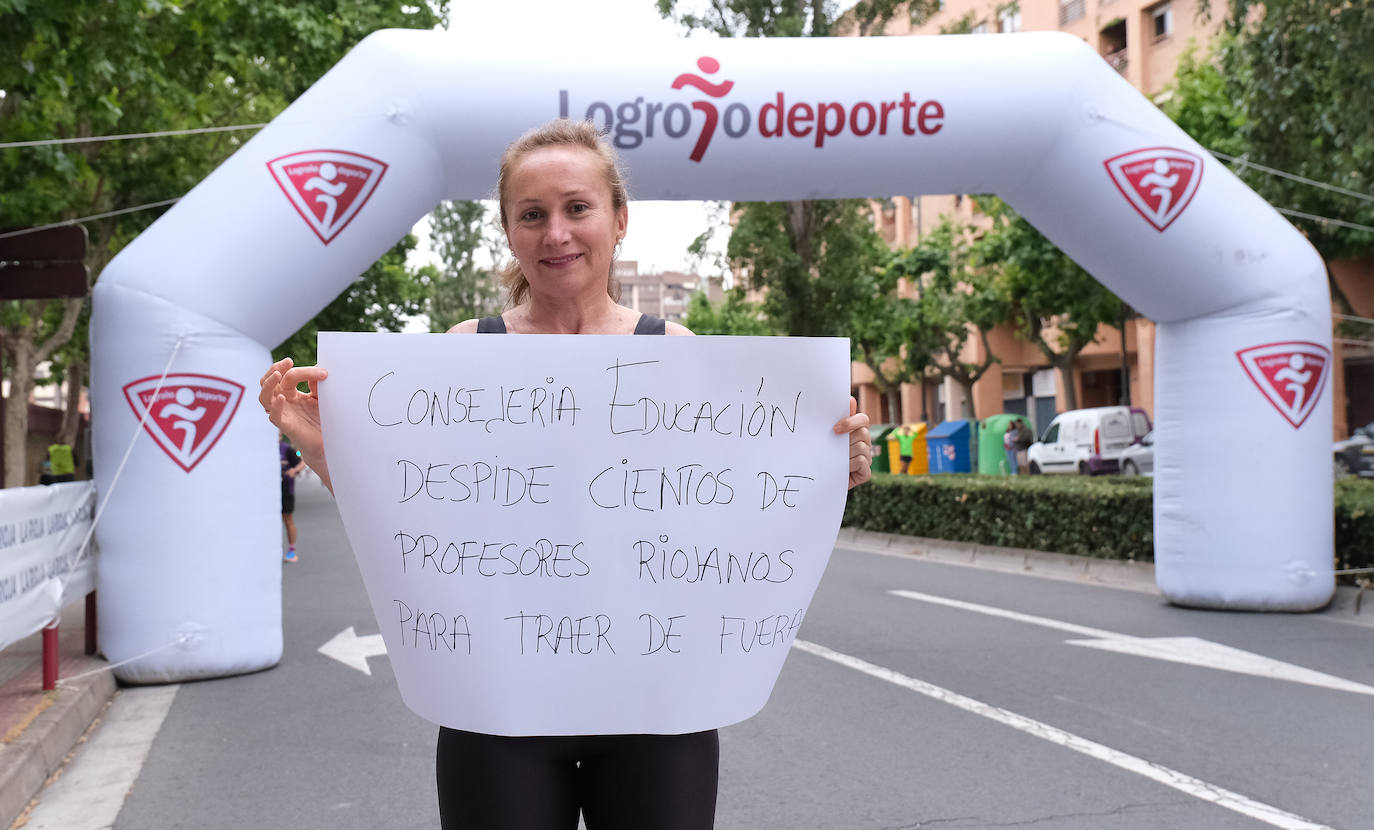 Logroño deporte
Logroño
deporte
Logroño
deporte
Logroño
deporte
Logroño
deporte
CONSEJERIA EDUCACIÓN
DESPIDE CIENTOS DE
PROFESORES RIOJANOS
PARA TRAER DE FUERA
LA RIOJA LA RIOJA